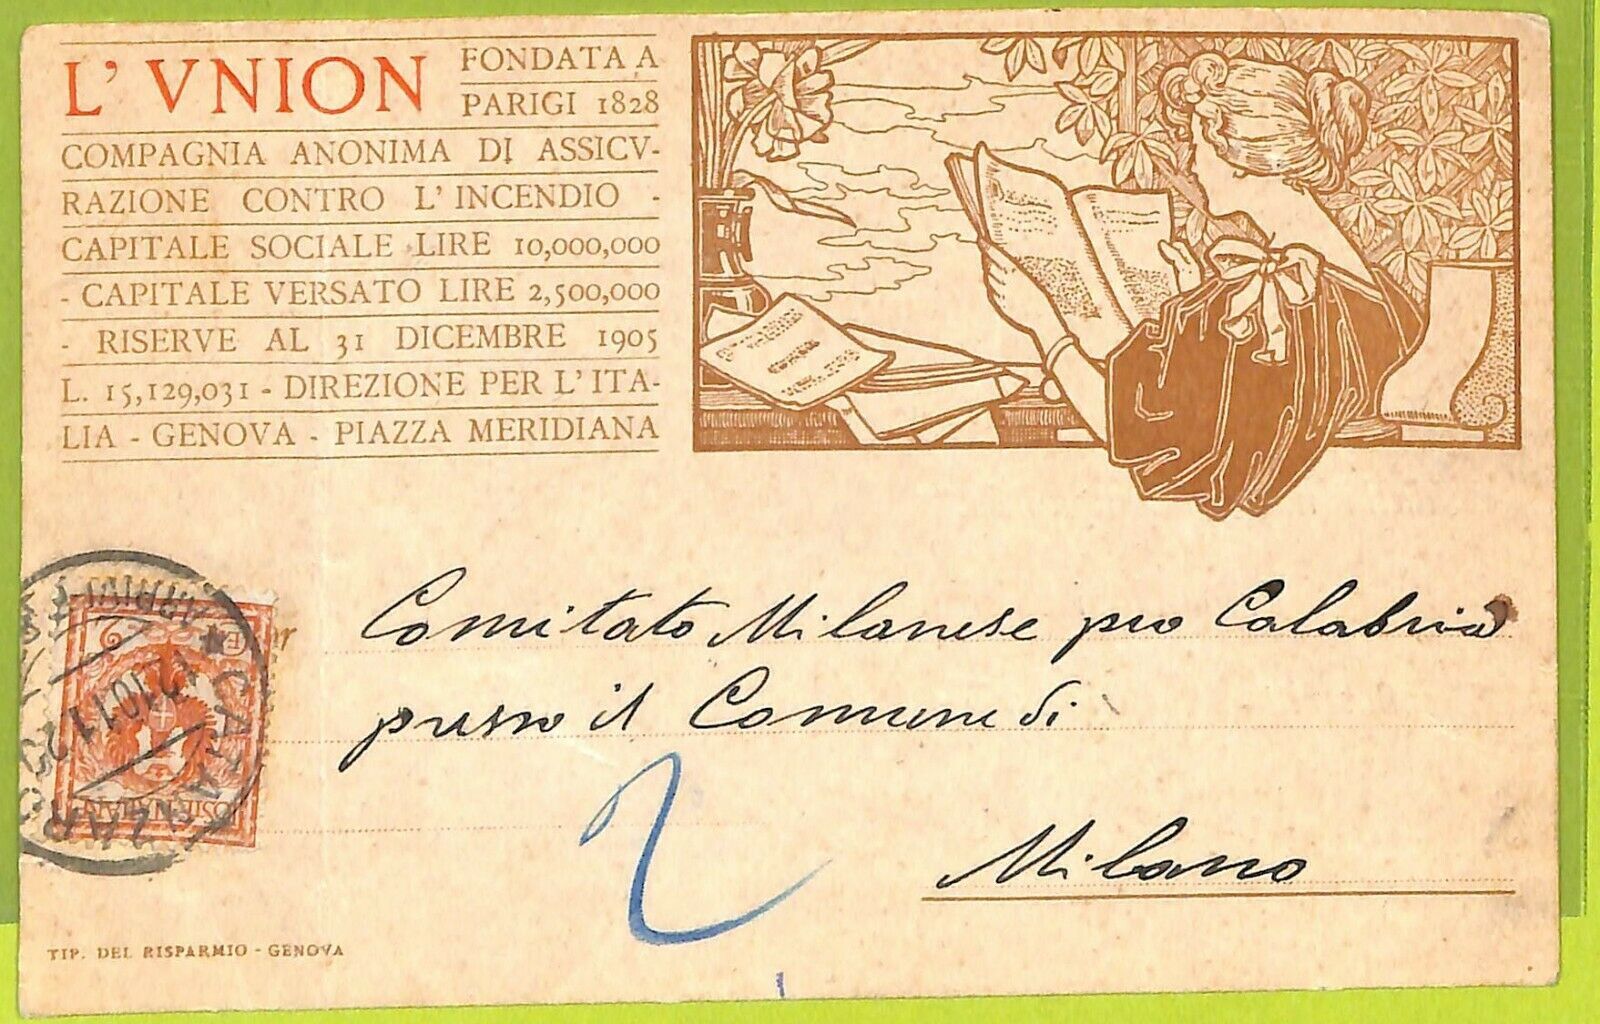 L' VNION
FONDATA A
PARIGI 1828
COMPAGNIA ANONIMA DI ASSICV-
RAZIONE CONTRO L'INCENDIO -
CAPITALE SOCIALE LIRE 10,000,000
- CAPITALE VERSATO LIRE 2,500,000
- RISERVE AL 31 DICEMBRE 1905
L. 15,129,031 - DIREZIONE PER L'ITA-
LIA - GENOVA - PIAZZA MERIDIANA
Comitato Milanese pro Calabria
presso il Comune di
Milano
2
CATANZARO
12.10.11
POSTE ITALIANE
TIP. DEL RISPARMIO - GENOVA